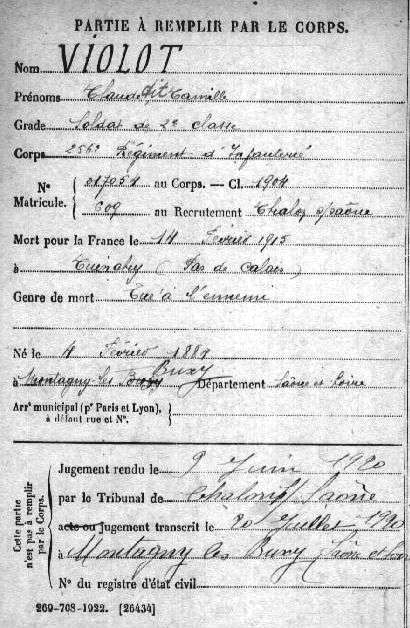 PARTIE À REMPLIR PAR LE CORPS.
Nom VIOLOT
Prénoms Claude dit Camille
Grade Soldat de 2e classe
Corps 256e Régiment d'Infanterie
Nos Matricule. { 017051 au Corps. — Cl. 1904
{ 609 au Recrutement Chalon s/Saône
Mort pour la France le 14 Février 1915
à (Pas de Calais)
Genre de mort Tué à l'ennemi
Né le 4 Février 1884
à Montagny les Buxy Département Saône et Loire
Arrt municipal (pr Paris et Lyon),
à défaut rue et No.
Cette partie n'est pas à remplir par le Corps.
Jugement rendu le 9 Juin 1920
par le Tribunal de Chalon s/ Saône
acte ou jugement transcrit le 20 Juillet 1920
à Montagny les Buxy (Saône et Loire
No du registre d'état civil
269-708-1922. [26434]